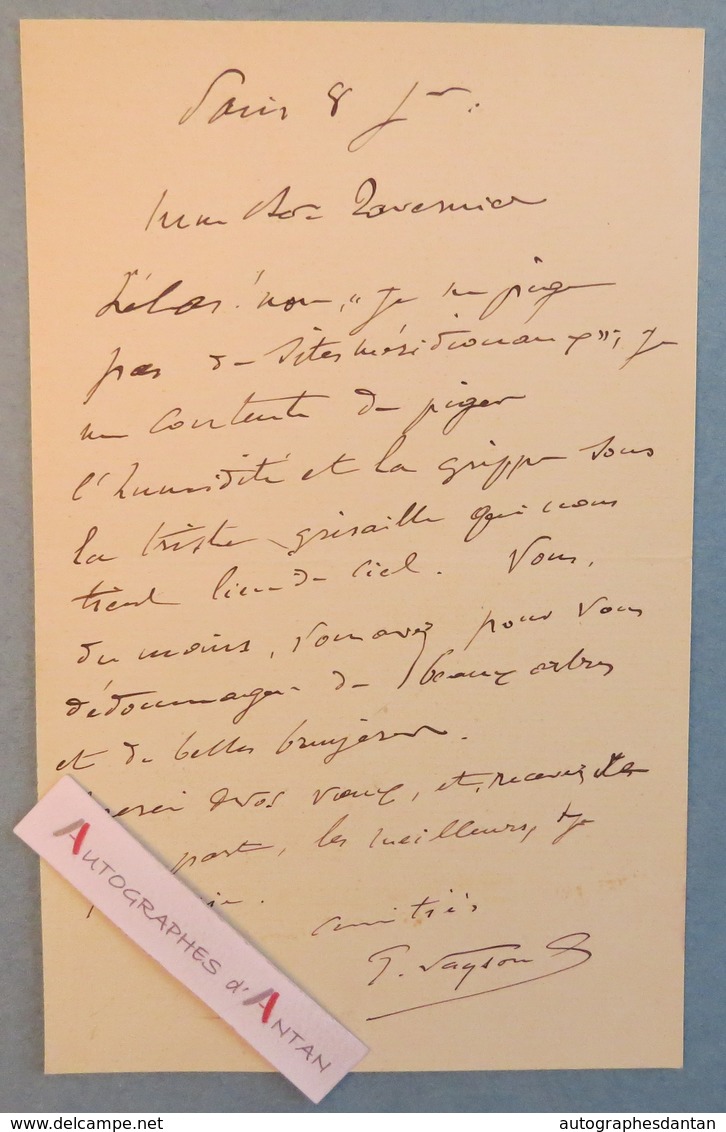 Paris 8 Jer.
Mon cher Tavernier
Hélas! non, "je ne pige
pas de sites méridionaux"; je
me contente de piger
l'humidité et la grippe sous
la triste grisaille qui nous
tient lieu de ciel. Vous,
du moins, vous avez pour vous
dédommager de beaux arbres
et de belles bruyères.
Merci de vos vœux, et, recevez de
part, les meilleurs, je
amitiés
P. Vayson
AUTOGRAPHES d'ANTAN
www.delcampe.net
autographesdantan